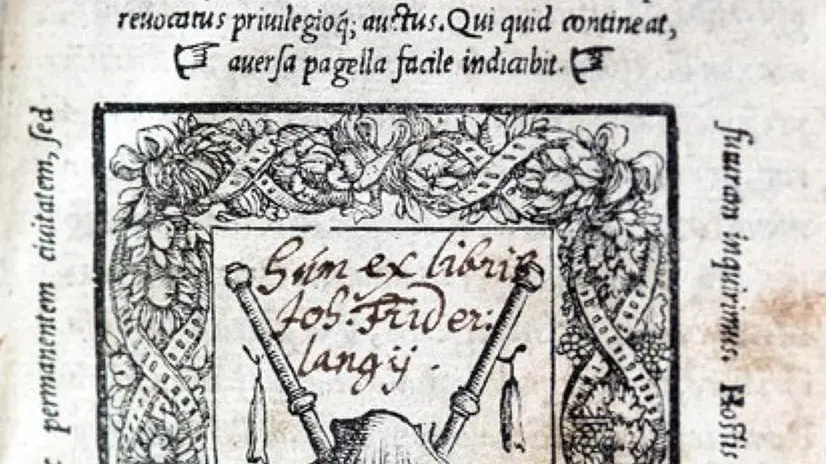 reuocatus priuilegioq́; auctus. Qui quid contineat,
auersa pagella facile indicabit.
permanentem ciuitatem, sed
Sum ex libris
Joh: Frider:
langij.
futuram inquirimus. Hostis